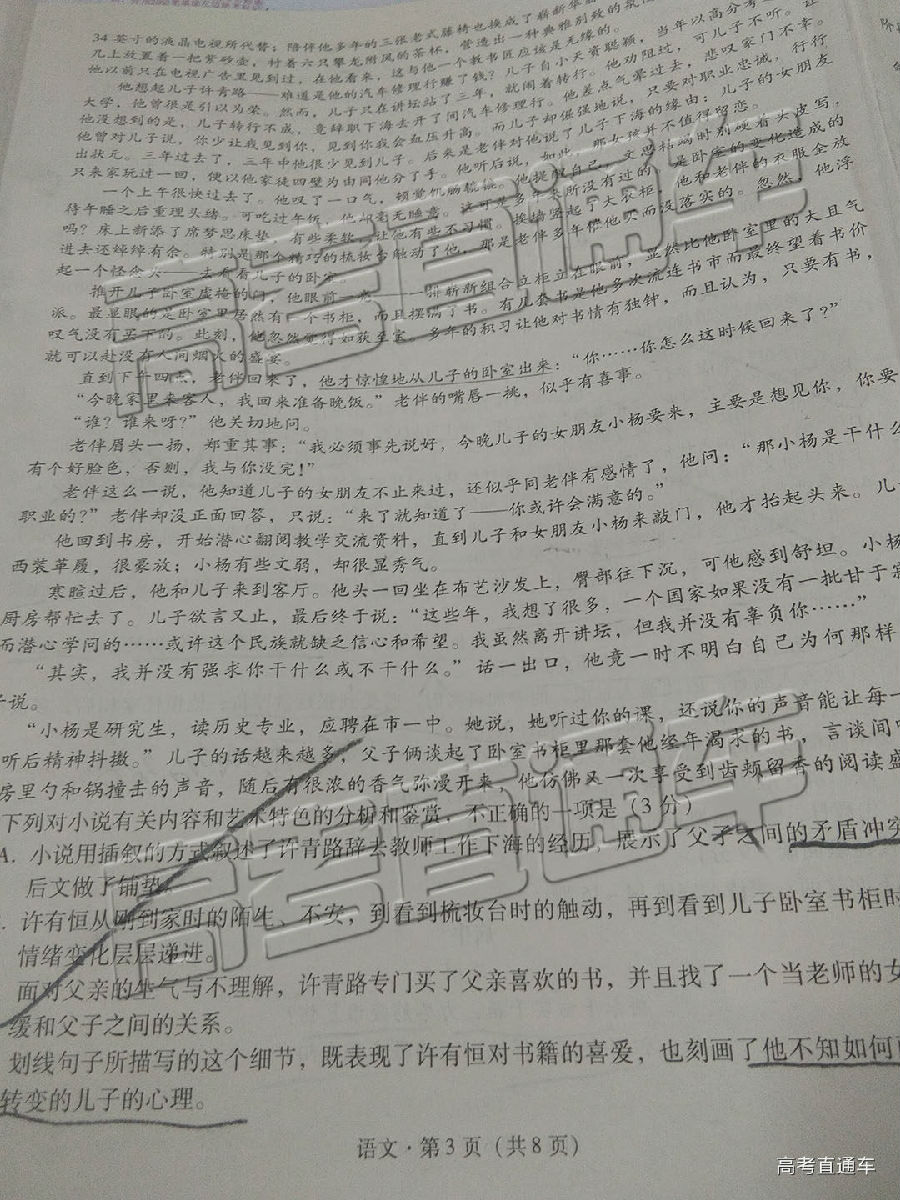 34英寸的液晶电视所代替；陪伴他多年的三张老式藤椅也换成了崭新
几上放置着一把紫砂壶，衬着六只攀龙附凤的茶杯，营造出一种典雅别致的氛
他以前只在电视广告里见到过，在他看来，这与他一个教书匠应该是无缘的。
他想起儿子许青路——难道是他的汽车修理行赚了钱？儿子自小天资聪颖，当年以高分考
大学，他曾很是引以为荣。然而，儿子只在讲坛站了三年，就闹着转行。他劝阻过，可儿子不听。让
他没想到的是，儿子转行不成，竟辞职下海去开了间汽车修理行。他差点气晕过去，悲叹家门不幸。
他曾对儿子说，你少让我见到你，见到你我会血压升高。而儿子却倔强地说，只要对职业忠诚，行行
出状元。三年过去了，三年中他很少见到儿子。后来是老伴对他说了儿子下海的缘由：儿子的女朋友
只来家玩过一回，便以他家徒四壁为由同他分了手。他听后说，如此，那女孩并不值得留恋。
一个上午很快过去了。他叹了一口气，顿觉饥肠辘辘。他提醒自己，文思枯竭时别硬着头皮写，
待午睡之后重理头绪。可吃过午饭，他却毫无睡意。这可是多年来所没有过的，是卧室的变化造成的
吗？床上新添了席梦思床垫，有些柔软，让他有些不习惯。挨墙竖起了大衣柜，他和老伴的衣服全放
进去还绰绰有余。特别是那个精巧的梳妆台触动了他，那是老伴多年催他买而没落实的。忽然，他浮
起一个怪念头——去看看儿子的卧室。
推开儿子卧室虚掩的门，他眼前一亮——崭新组合立柜立在眼前，显然比他卧室里的大且气
派。最显眼的是卧室里居然有一个书柜，而且摆满了书。有几套书是他多次流连书市而最终望着书价
叹气没有买下的。此刻，他忽然觉得如获至宝。多年的积习让他对书情有独钟，而且认为，只要有书，
就可以赴没有人间烟火的盛宴。
直到下午四点，老伴回来了，他才惊惶地从儿子的卧室出来：“你……你怎么这时候回来了？”
“今晚家里来客人，我回来准备晚饭。”老伴的嘴唇一挑，似乎有喜事。
“谁？谁来呀？”他关切地问。
老伴眉头一扬，郑重其事：“我必须事先说好，今晚儿子的女朋友小杨要来，主要是想见你，你要
有个好脸色，否则，我与你没完！”
老伴这么一说，他知道儿子的女朋友不止来过，还似乎同老伴有感情了，他问：“那小杨是干什么
职业的？”老伴却没正面回答，只说：“来了就知道了——你或许会满意的。”
他回到书房，开始潜心翻阅教学交流资料，直到儿子和女朋友小杨来敲门，他才抬起头来。儿
西装革履，很豪放；小杨有些文弱，却很显秀气。
寒暄过后，他和儿子来到客厅。他头一回坐在布艺沙发上，臀部往下沉，可他感到舒坦。小杨
厨房帮忙去了。儿子欲言又止，最后终于说：“这些年，我想了很多，一个国家如果没有一批甘于寂
而潜心学问的……或许这个民族就缺乏信心和希望。我虽然离开讲坛，但我并没有辜负你……”
“其实，我并没有强求你干什么或不干什么。”话一出口，他竟一时不明白自己为何那样
子说。
“小杨是研究生，读历史专业，应聘在市一中。她说，她听过你的课，还说你的声音能让每一
听后精神抖擞。”儿子的话越来越多，父子俩谈起了卧室书柜里那套他经年渴求的书，言谈间
房里勺和锅撞击的声音，随后有很浓的香气弥漫开来，他仿佛又一次享受到齿颊留香的阅读盛
下列对小说有关内容和艺术特色的分析和鉴赏，不正确的一项是（3分）
A. 小说用插叙的方式叙述了许青路辞去教师工作下海的经历，展示了父子之间的矛盾冲突
后文做了铺垫。
. 许有恒从刚到家时的陌生、不安，到看到梳妆台时的触动，再到看到儿子卧室书柜时
情绪变化层层递进。
面对父亲的生气与不理解，许青路专门买了父亲喜欢的书，并且找了一个当老师的女
缓和父子之间的关系。
划线句子所描写的这个细节，既表现了许有恒对书籍的喜爱，也刻画了他不知如何
转变的儿子的心理。
语文·第3页（共8页）
高考直通车